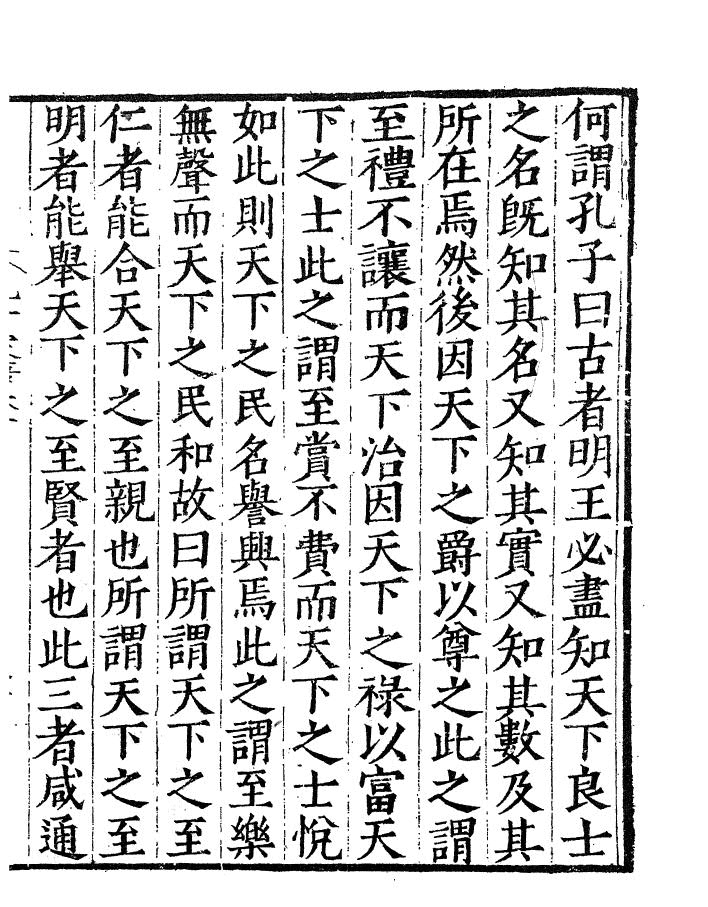 何謂孔子曰古者明王必盡知天下良士
之名旣知其名又知其實又知其數及其
所在焉然後因天下之爵以尊之此之謂
至禮不讓而天下治因天下之祿以富天
下之士此之謂至賞不費而天下之士悅
如此則天下之民名譽興焉此之謂至樂
無聲而天下之民和故曰所謂天下之至
仁者能合天下之至親也所謂天下之至
明者能舉天下之至賢者也此三者咸通